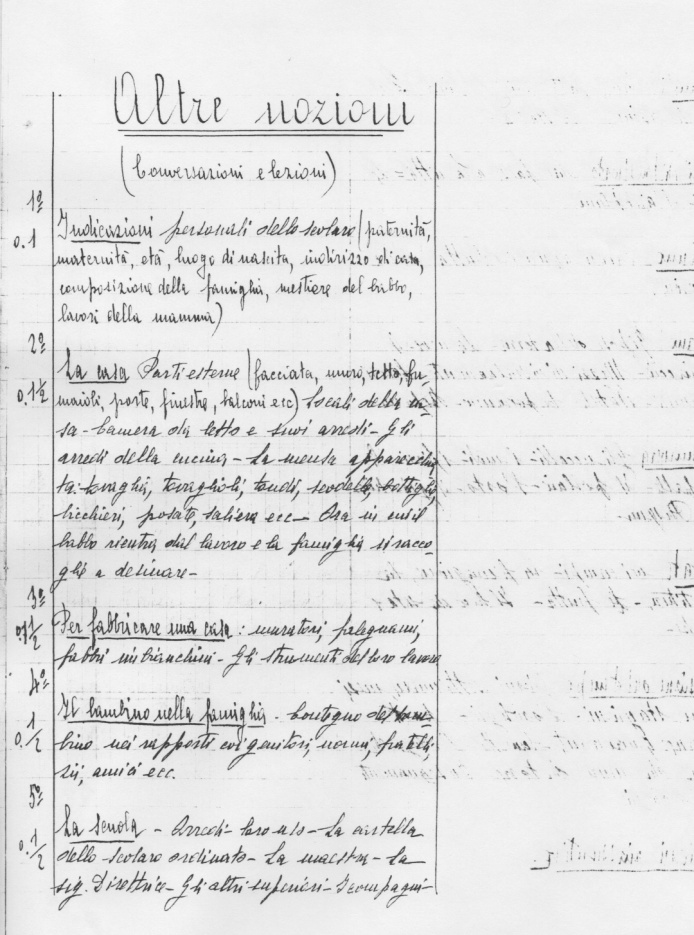 Altre nozioni
(Conversazioni e lezioni)
1º
o.1 Indicazioni personali dello scolaro (paternità,
maternità, età, luogo di nascita, indirizzo di casa,
composizione della famiglia, mestiere del babbo,
lavori della mamma)
2º
o.1½ La casa Parti esterne (facciata, muro, tetto, fu-
maioli, porte, finestre, balconi ecc) Locali della ca-
sa - Camera da letto e suoi arredi - Gli
arredi della cucina - La mensa apparecchia
ta - tovaglia, tovaglioli, tondi, scodelle, bottiglie,
bicchieri, posate, saliera ecc - Ora in cui il
babbo rientra dal lavoro e la famiglia si racco-
glie a desinare -
3º
1/2 Per fabbricare una casa : muratori, falegnami,
fabbri imbianchini - Gli strumenti del loro lavoro
4º
o.1/2 Il bambino nella famiglia - Contegno del bam-
bino nei rapporti coi genitori, nonni, fratelli,
zii, amici ecc.
5º
o.1/2 La scuola - Arredi - loro uso - La cartella
dello scolaro ordinato - La maestra - La
sig. Direttrice - Gli altri superiori - I compagni -